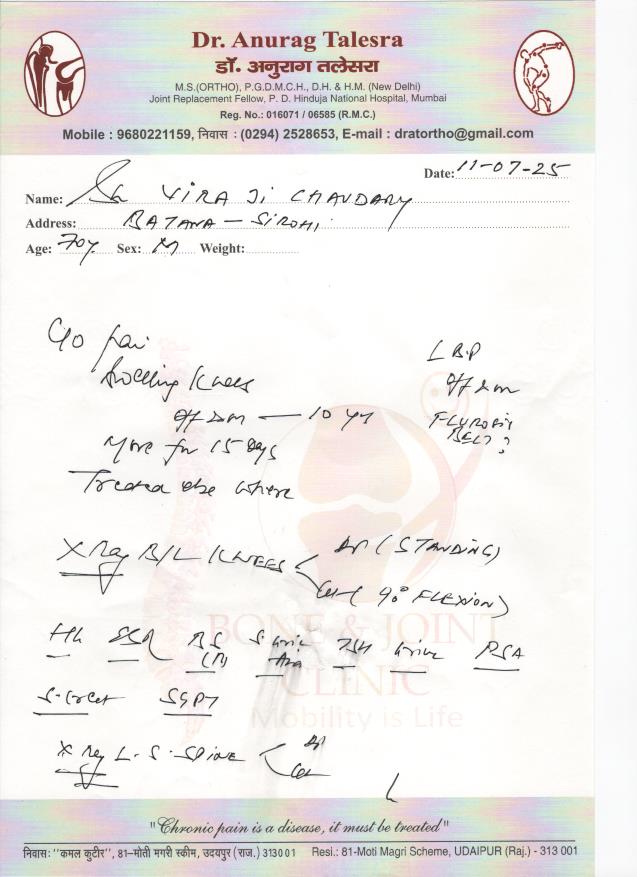 Dr. Anurag Talesra
डॉ. अनुराग तलेसरा
M.S.(ORTHO), P.G.D.M.C.H., D.H. & H.M. (New Delhi)
Joint Replacement Fellow, P. D. Hinduja National Hospital, Mumbai
Reg. No.: 016071 / 06585 (R.M.C.)
Mobile : 9680221159, निवास : (0294) 2528653, E-mail : dratortho@gmail.com
Date: 11-07-25
Name: Sh VIRA JI CHAUDARY
Address: BATANA - SIROHI
Age: 70y Sex: M Weight:
C/o pain
Swelling Knees
off & on - 10 yr
More for 15 Days
Treated else where
LBP
off & on
FLUROSIS
BELT?
X Ray B/L KNEES AP (STANDING)
Lat (90° FLEXION)
Hb ESR BS (R) S. Uric Acid TSH Urine PSA
S. Creat SGPT
X Ray L-S-SPINE AP
Lat
BONE & JOINT
CLINIC
Mobility is Life
"Chronic pain is a disease, it must be treated"
निवास: "कमल कुटीर", 81-मोती मगरी स्कीम, उदयपुर (राज.) 313001 Resi.: 81-Moti Magri Scheme, UDAIPUR (Raj.) - 313 001